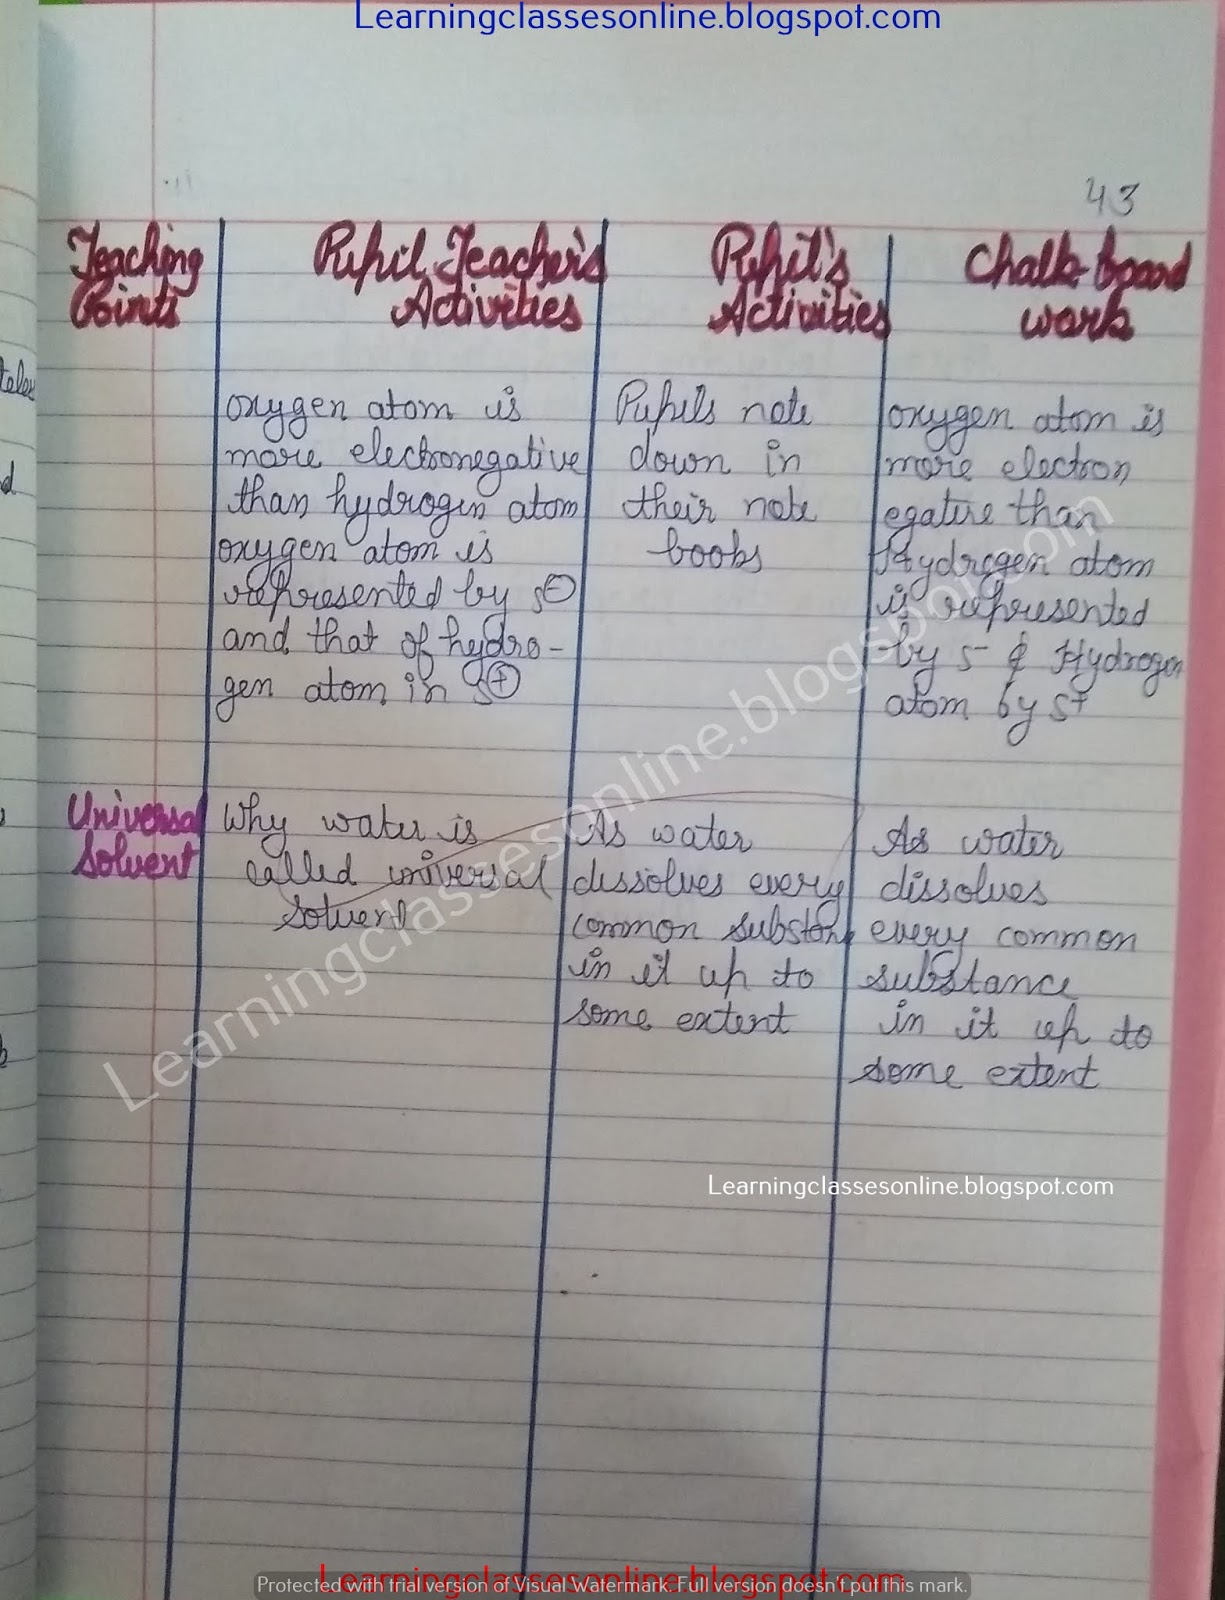 Learningclassesonline.blogspot.com
43
Teaching
Points
Pupil Teacher's
Activities
Pupil's
Activities
Chalk-board
work
oxygen atom is
more electronegative
than hydrogen atom
oxygen atom is
represented by s⊖
and that of hydro-
gen atom in s⊕
Pupils note
down in
their note
books
oxygen atom is
more electron
egative than
Hydrogen atom
is represented
by s- & Hydrogen
atom by s+
Universal
Solvent
Why water is
called universal
solvent
As water
dissolves every
common substanc
in it up to
some extent
As water
dissolves
every common
substance
in it up to
some extent
Learningclassesonline.blogspot.com
Learningclassesonline.blogspot.com
Learningclassesonline.blogspot.com
Protected with trial version of Visual Watermark. Full version doesn't put this mark.